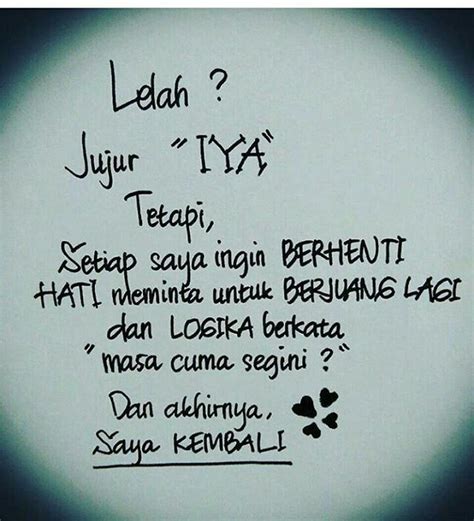 Lelah ?
Jujur "IYA"
Tetapi,
Setiap saya ingin BERHENTI
HATI meminta untuk BERJUANG LAGI
dan LOGIKA berkata
"masa cuma segini ?"
Dan akhirnya,
Saya KEMBALI